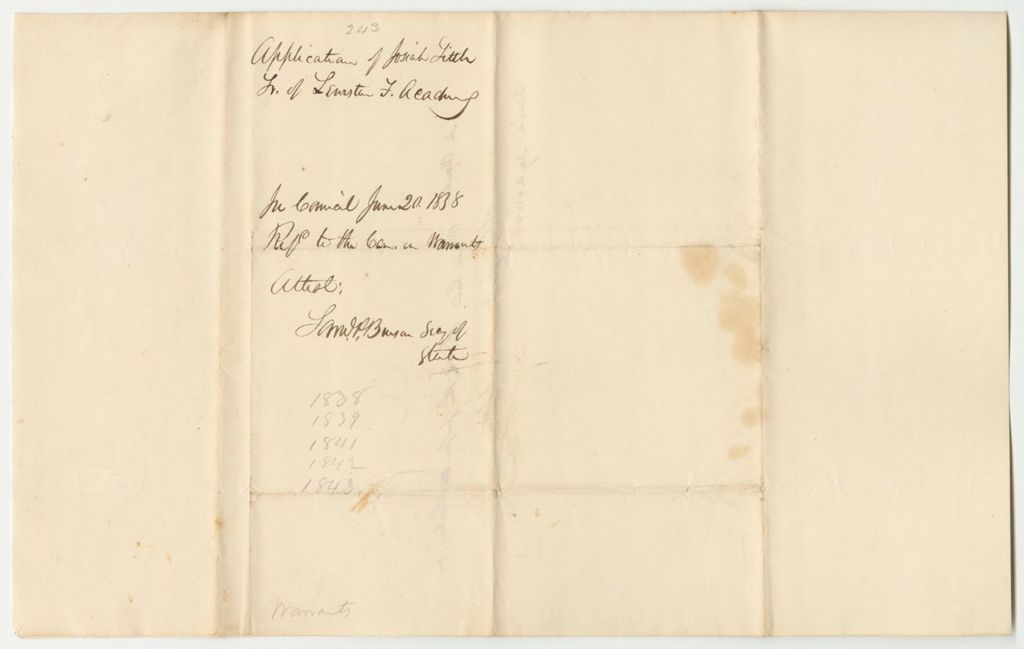 243
Application of Josiah Little
Tr. of Lewiston F. Academy
In Council June 20. 1838
Refd to the Com. on Warrants
Attest:
Saml. P. Benson Secy of
State
1838
1839
1841
1842
1843.
Warrants